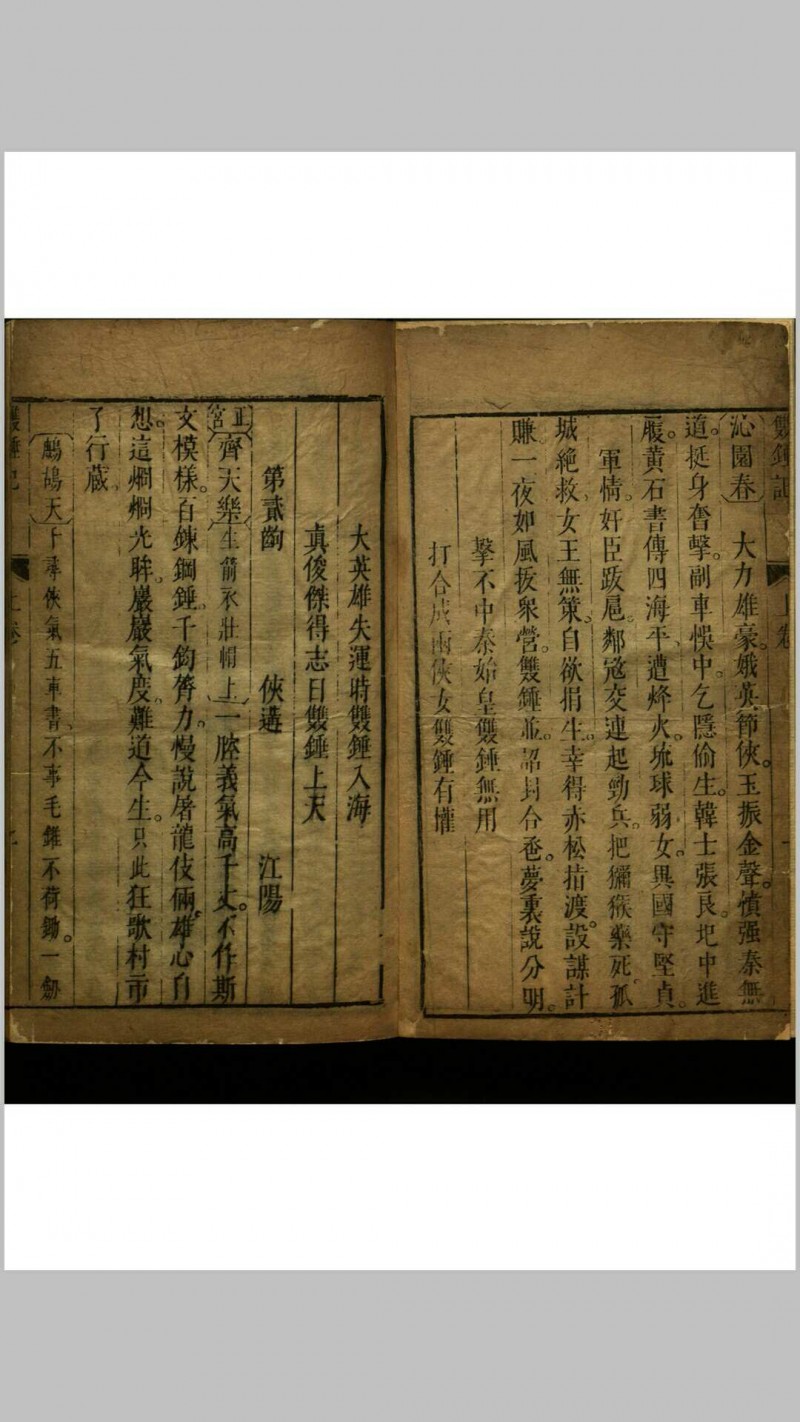 雙錘記 上卷
沁園春 大力雄豪。娥英節俠。玉振金聲。憤强秦無
道。挺身奮擊。副車悞中。乞隱偷生。韓士張良。圯中進
履。黃石書傳四海平。遭烽火。琉球弱女。異國守堅貞。
軍情。奸臣跋扈。鄰冦交連起勁兵。把獼猴藥死。孤
城絶救。女王無策。自欲捐生。幸得赤松指渡。設謀計
賺一夜如風拔衆營。雙錘並。詔封合巹。夢裏說分明。
擊不中秦始皇雙錘無用
打合成兩俠女雙錘有權
大英雄失運時雙錘入海
真俊傑得志日雙錘上天
第貳齣 俠遘 江陽
正宮 齊天樂 生箭衣壯帽上 一腔義氣高千丈。不作斯
文模樣。百鍊鋼錘。千鈞膂力。慢說屠龍伎倆。雄心自
想。這烱烱光眸。巖巖氣度。難道今生。只此狂歌村市
了行蔵。
鷓鴣天 俠氣五車書。不事毛錐不荷鋤。一劒
雙錘記 上卷